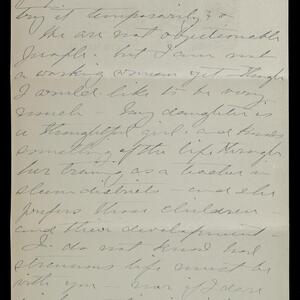 try it temporarily &
We are not objectionable
people. but I am not
a working woman yet - though
I would like to be very
much - My daughter is
a thoughtful girl. and knows
something of the life through
her training as a teacher in
slum districts - and she
prefers those children
and their development -
I do not know how
strenuous life must be
with you - nor if I dare